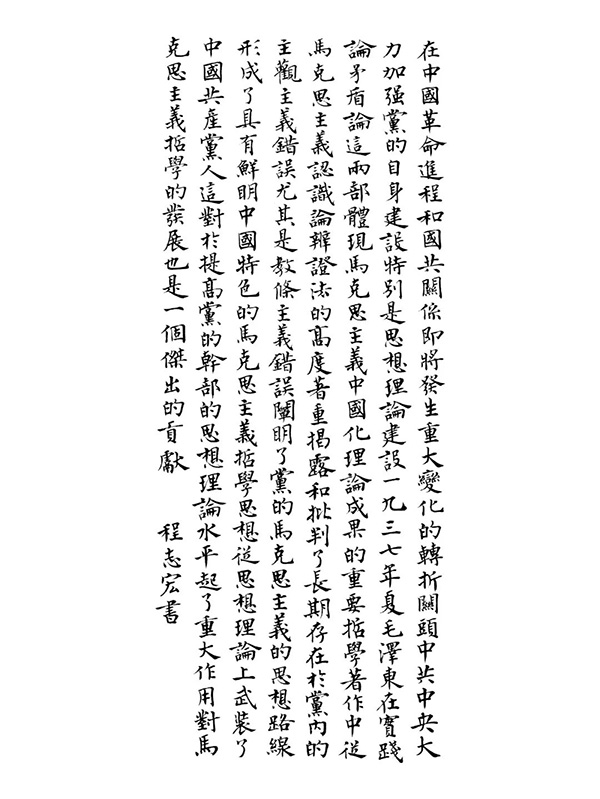 在中國革命進程和國共關係即將發生重大變化的轉折關頭中共中央大
力加强黨的自身建設特别是思想理論建設一九三七年夏毛澤東在實踐
論矛盾論這兩部體現馬克思主義中國化理論成果的重要哲學著作中從
馬克思主義認識論辯證法的高度著重揭露和批判了長期存在於黨內的
主觀主義錯誤尤其是教條主義錯誤闡明了黨的馬克思主義的思想路線
形成了具有鮮明中國特色的馬克思主義哲學思想從思想理論上武裝了
中國共產黨人這對於提高黨的幹部的思想理論水平起了重大作用對馬
克思主義哲學的發展也是一個傑出的貢獻 程志宏書